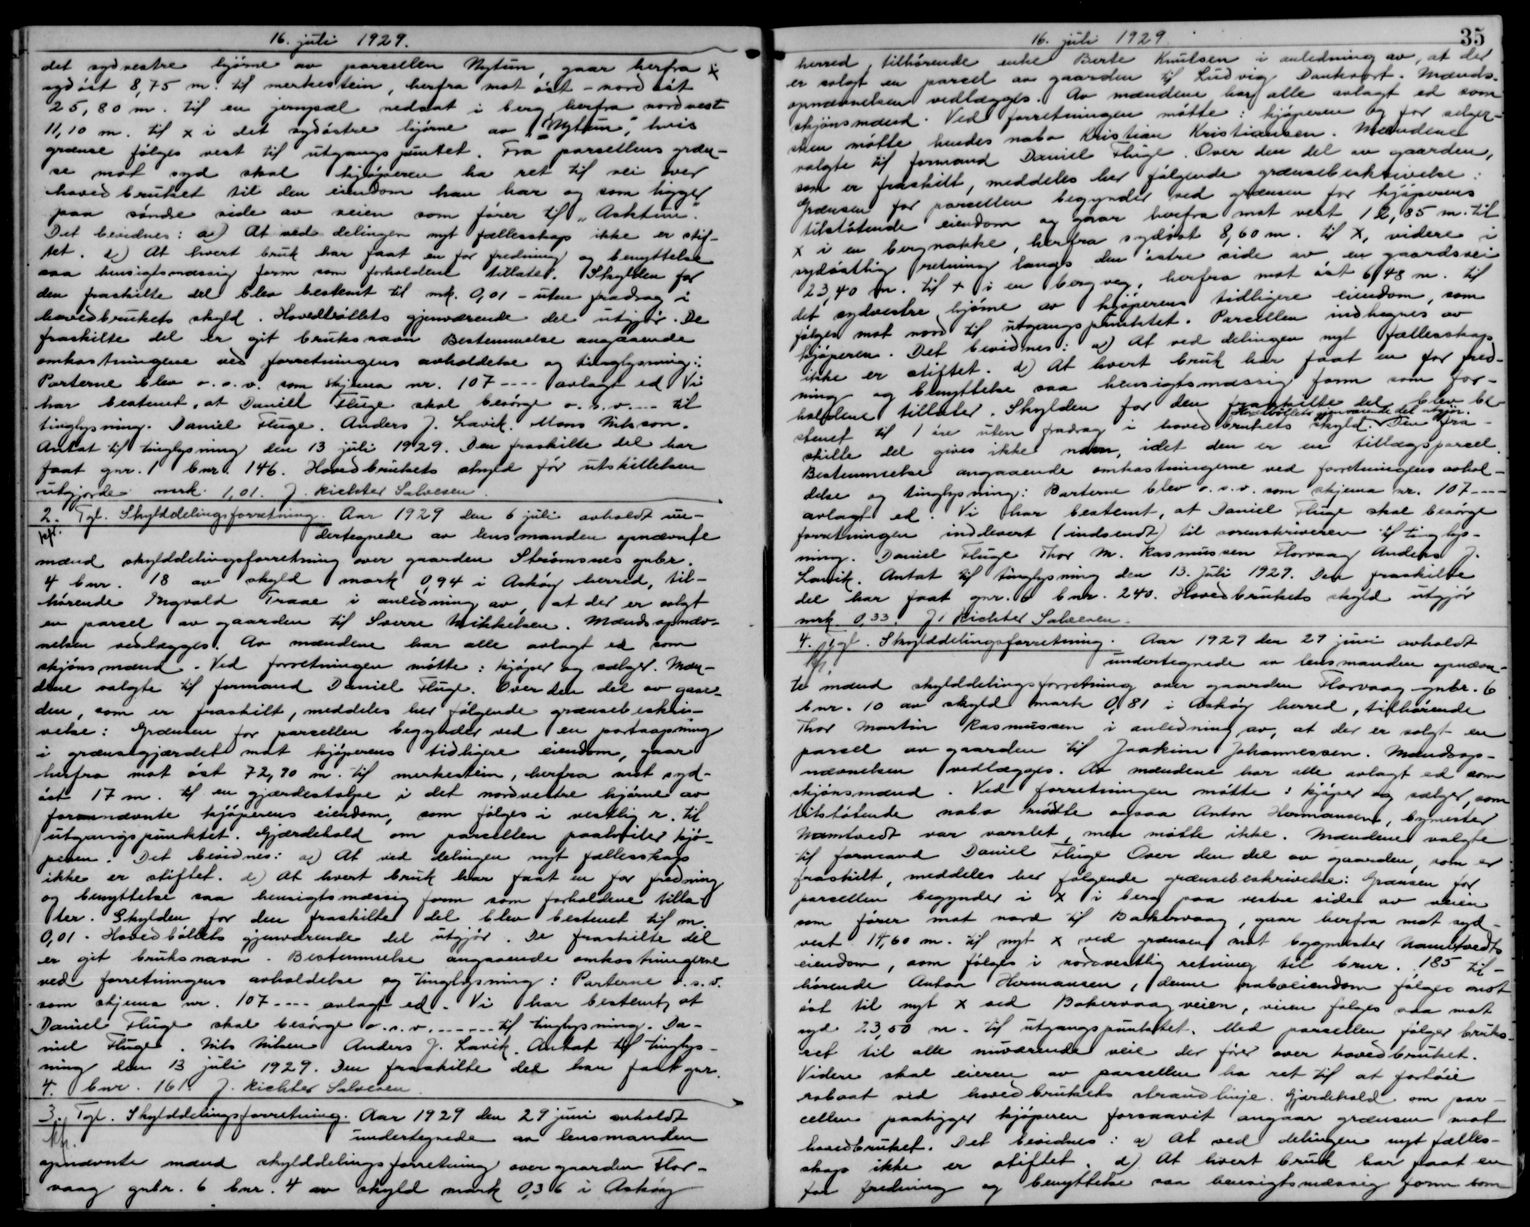 16. juli 1929.
det sydvestre hjørne av parcellen Nytun, gaar herfra i
sydöst 8,75 m. til merkestein, herfra mot öst - nord öst
25,80 m. til en jernpæl nedsat i berg herfra nordvest
11,10 m. til x i det sydöstre hjörne av "Nytun", hvis
grænse følges vest til utgangspuntet. Fra parsellens græn-
se mot syd skal kjøperen ha ret til vei over
hovedbruket til den eiendom han har og som ligger
paa söndre side av veien som fører til "Asktun".
Det bevidnes: a) At ved delingen nyt fællesskap ikke er stif-
tet. d) At hvert bruk har faat en for fredning og benyttelse
saa hensigtsmæssig form som forholdene tillater. Skylden for
den fraskilte del blev bestemt til mk. 0,01 - uten fradrag i
hovedbrukets skyld. Hovedbøllets gjenværende del utgjör. De
fraskilte del er git bruksnavn Bestemmelse angaaende
omkostningene ved forretningens avholdelse og tinglysning:
Parterne blev o.s.v. som skjema nr. 107 ---- avlagt ed. Vi
har bestemt, at Daniell Fluge skal besørge o.s.v. --- til
tinglysning. Daniel Fluge. Anders J. Lavik. Mons Nilsson.
Antat til tinglysning den 13 juli 1929. Den fraskilte del har
faat gnr. 1 bnr. 146. Hovedbrukets skyld för utskillelsen
utgjorde mrk. 1,01. J. Richter Salvesen.
2. Tgl. Skylddelingsforretning. Aar 1929 den 6 juli avholdt un-
dertegnede av lensmanden opnævnte
mænd skylddelingsforretning over gaarden Strömsnes gnbr.
4 bnr. 18 av skyld mark 0,94 i Asköy herred, til-
hørende Ingvald Traae i anledning av, at der er solgt
en parsel av gaarden til Sverre Mikkelsen. Mændsopnæv-
nelsen vedlægges. Av mændene har alle avlagt ed som
skjönsmænd. Ved forretningen møtte: kjøper og sælger. Mæn-
dene valgte til formand Daniel Fluge. Over den del av gaar-
den, som er fraskilt, meddeles her følgende grænsebeskri-
velse: Grænsen for parsellen begynder ved en portaapning
i grænsegjærdet mot kjöperens tidligere eiendom, gaar
herfra mot öst 72,90 m. til merkestein, herfra mot syd-
öst 17 m. til en gjærdestolpe i det nordvestre hjörne av
forannævnte kjöperens eiendom, som følges i vestlig r. til
utgangspunktet. Gjærdehold om parsellen paahviler kjø-
peren. Det bevidnes: a) At ved delingen nyt fællesskap
ikke er stiftet. d) At hvert bruk har faat en for fredning
og benyttelse saa hensigtsmæssig form som forholdene tilla-
ter. Skylden for den fraskilte del blev bestemt til m.
0,01. Hovedbölets gjenværende del utgjör. De fraskilte del
er git bruksnavn. Bestemmelse angaaende omkostningerne
ved forretningens avholdelse og tinglysning: Parterne o.s.v.
som skjema nr. 107 ---- avlagt ed. Vi har bestemt, at
Daniel Fluge skal besørge o.s.v. ------ til tinglysning. Da-
niel Fluge. Nils Nilsen Anders J. Lavik. Antat til tinglys-
ning den 13 juli 1929. Den fraskilte del har faat gnr.
4 bnr. 161. J. Richter Salvesen
3. Tgl. Skylddelingsforretning. Aar 1929 den 29 juni avholdt
undertegnede av lensmanden
opnævnte mænd skylddelingsforretning over gaarden Flor-
vaag gnbr. 6 bnr. 4 av skyld mark 0,36 i Asköy
16. juli 1929
35
herred, tilhørende enke Berte Knutsen i anledning av, at der
er solgt en parcel av gaarden til Ludvig Dankvart. Mænds-
opnævnelsen vedlægges. Av mændene har alle avlagt ed som
skjönsmænd. Ved forretningen møtte: kjöperen og for selger-
sken møtte hendes nabo Kristian Kristiansen. Mændene
valgte til formand Daniel Fluge. Over den del av gaarden,
som er fraskilt, meddeles her følgende grænsebeskrivelse:
Grænsen for parsellen begynder ved grænsen for kjöperens
tilstötende eiendom og gaar herfra mot vest 12,85 m. til
x i en bergnakke, herfra sydöst 8,60 m. til x, videre i
sydöstlig retning langs den östre side av en gaardsvei
23,40 m. til + i en bergveg, herfra mot öst 6,48 m. til
det sydvestre hjørne av kjöperens tidligere eiendom, som
følges mot nord til utgangspunktet. Parsellen indhegnes av
kjöperen. Det bevidnes: a) At ved delingen nyt fællesskap
ikke er stiftet. d) At hvert bruk har faat en for fred-
ning og benyttelse saa hensigtsmæssig form som for-
holdene tillater. Skylden for den fraskilte del blev be-
Hovedbøllets gjenværende del utgjør.
stemt til 1 øre uten fradrag i hovedbrukets skyld. Den fra-
skille del gives ikke navn, idet den er en tillægsparsel.
Bestemmelse angaaende omkostningerne ved forretningens avhol-
delse og tinglysning: Parterne blev o.s.v. som skjema nr. 107 ----
avlagt ed. Vi har bestemt, at Daniel Fluge skal besørge
forretningen indlevert (indsendt) til sorenskriveren til tinglys-
ning. Daniel Fluge Thor M. Rasmussen Florvaag Anders J.
Lavik. Antat til tinglysning den 13. juli 1929. Den fraskilte
del har faat gnr. 6 bnr. 240. Hovedbrukets skyld utgjör
mrk 0,33 J. Richter Salvesen.
4. Tgl. Skylddelingsforretning. Aar 1929 den 29 juni avholdt
undertegnede av lensmanden opnævn-
te mænd skylddelingsforretning over gaarden Florvaag gnbr. 6
bnr. 10 av skyld mark 0,81 i Asköy herred, tilhørende
Thor Martin Rasmussen i anledning av, at der er solgt en
parsel av gaarden til Joakim Johannessen. Mændsop-
nævnelsen vedlægges. Av mændene har alle avlagt ed som
skjönsmænd. Ved forretningen møtte: kjöper og sælger, som
tilstötende nabo møtte ogsaa Anton Hermansen, bymester
Namtvedt var varslet, men møtte ikke. Mændene valgte
til formand Daniel Fluge Over den del av gaarden, som er
fraskilt, meddeles her følgende grænsebeskrivelse: Grænsen for
parsellen begynder i x i berg paa vestre side av veien
som fører mot nord til Bakervaag, gaar herfra mot syd-
vest 14,60 m. til nyt x ved grænsen mot byggmester Namtvedts
eiendom, som følges i nordvestlig retning til bnr. 185 til-
hörende Anton Hermansen, denne naboeiendom følges mot
öst til nyt x ved Bakervaag veien, veien følges saa mot
syd 23,50 m. til utgangspunktet. Med parsellen følger bruks-
ret til alle nuværende veie der fører over hovedbruket.
Videre skal eieren av parsellen ha ret til at fortöie
robaat ved hovedbrukets strandlinje. Gjærdehold om par-
cellen paaligger kjöperen forsaavit angaar grænsen mot
hovedbruket. Det bevidnes: a) At ved delingen nyt fælles-
skap ikke er stiftet. d) At hvert bruk har faat en
for fredning og benyttelse saa hensigtsmæssig form som